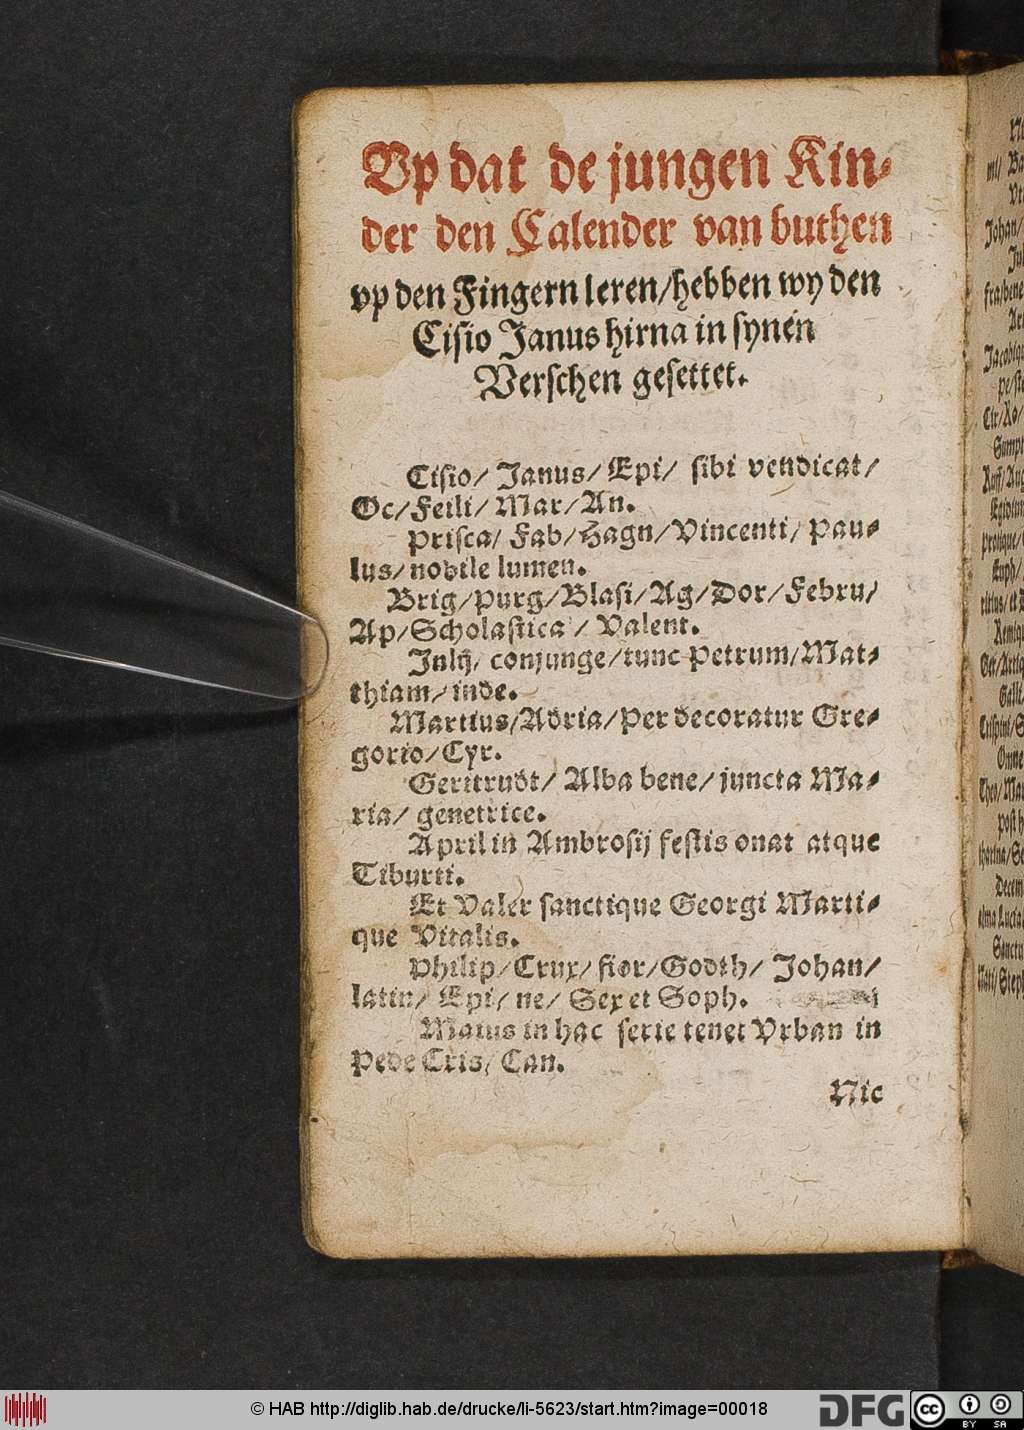 Vp dat de jungen Kin-
der den Calender van buthen
vp den Fingern leren/hebben wy den
Cisio Janus hirna in synen
Verschen gesettet.
Cisio/ Janus/ Epi/ sibi vendicat/
Oc/Feili/ Mar/An.
Prisca/ Fab/Hagn/Vincenti/ Pau-
lus/nobile lumen.
Brig/Purg/Blasi/Ag/Dor/Febru/
Ap/Scholastica/ Valent.
Julij/ conjunge/tunc Petrum/Mat-
thiam/inde.
Martius/Adria/Per decoratur Gre-
gorio/Cyr.
Gertrudt/ Alba bene/juncta Ma-
ria/ genetrice.
April in Ambrosij festis onat atque
Tiburti.
Et Valer sanctique Georgi Marti-
que Vitalis.
Philip/Crux/fior/Godth/ Johan/
latin/ Epi/ne/ Sex et Soph.
Maius in hac serie tenet Vrban in
Pede Cris/ Can.
Nic
© HAB http://diglib.hab.de/drucke/li-5623/start.htm?image=00018
DFG
cc BY SA